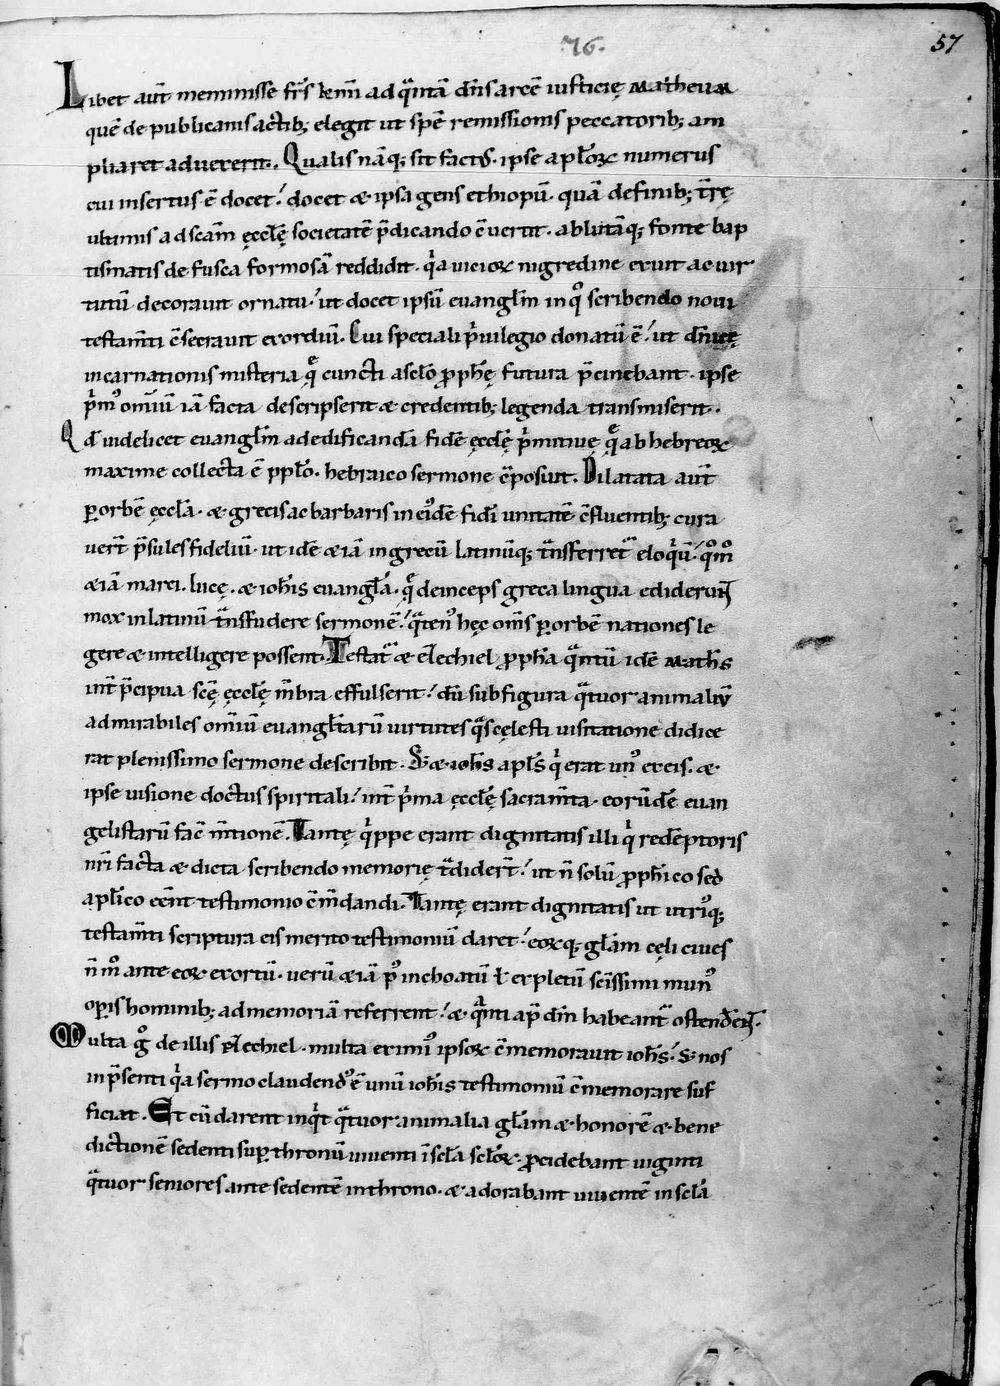 76.
57
Libet aut̄ meminisse fr̄s km̄i ad quantā dn̄s arcē iusticię Matheum
quē de publicanis actib; elegit ut spē remissionis peccatorib; am
pliaret aduexerit. Qualis nāq; sit factus. ipse aplo᷑ꝝ numerus
cui insertus ē docet. docet & ipsa gens ethiopū. quā de finib; tr̄ę
ultimis ad scām ęcclę̄ societatē p̄dicando c̄uertit. ablutāq; fonte bap
tismatis de fusca formosā reddidit. qͥa uicioꝝ nigredine exuit ac uir
tutū decorauit ornatu. ut docet ipsū euangl̄m in qͦ scribendo noui
testam̄ti c̄secrauit exordiū. Cui speciali pͥuilegio donatū ē. ut dn̄icę
incarnationis misteria quę cuncti a sclo ꝓphę̄ futura p̄cinebant. ipse
pͥm᷒ omīū iā facta descripserit & credentib; legenda transmiserit.
Qd̄ uidelicet euangl̄m ad edificandā fidē ęcclę̄ pͥmitiuę quę ab hebreoꝝ
maxime collecta ē pplo. hebraico sermone c̄posuit. Dilatata aut̄
ꝑ orbē ęcclā. & grecis ac barbaris in eidē fidei unitatē c̄fluentib; cura
uert̄ p̄sules fideliū. ut idē & iā in grecū latinūq; tͣnsferretͬ eloqͥū. qͦm̊
& iā marci. lucę. & ioh̄is euanglā. quę deinceps greca lingua ediderunt
mox in latinū tͣnsfudere sermonē. qͣten᷒ hęc om̄s ꝑ orbē nationes le
gere & intelligere possent. Testatͬ & ezechiel ꝓpha qͣntū idē Math̄s
int̄ p̄cipua scę̄ ęcclę̄ m̄bra effulserit. dū sub figura qͣtuor animaliū
admirabiles omīū euanglistarū uirtutes qͣs cęlesti uisitatione didice
rat plenissimo sermone describit. Sꝫ & ioh̄s apls̄ qͥ erat un᷒ ex eis. &
ipse uisione doctus spiritali. int̄ pͥma ęcclę̄ sacram̄ta. eorūdē euan
gelistarū fac̄ m̄tionē. Tantę qͥppe erant dignitatis illi qͥ redēptoris
nr̄i facta & dicta scribendo memorię tͣdidert̄. ut n̄ solū ꝓphico sed
aplico eēnt testimonio c̄m̄dandi. Tantę erant dignitatis ut utriusq;
testam̄ti scriptura eis merito testimoniū daret. eoꝝq; gl̄am cęli ciues
n̄ m̊ ante eoꝝ exortū. uerū & iā p᷒ inchoatū ł expletū scissimi mun᷒
opis hominib; ad memoriā referrent. & qͣnti ap̄ dm̄ habeantͬ ostenderent.
Multa gͦ de illis ezechiel. multa eximi᷒ ipsoꝝ c̄memorauit ioh̄s. sꝫ nos
in p̄senti qͥa sermo claudend᷒ ē unū ioh̄is testimoniū c̄memorare suf
ficiat. Et cū darent inqͥt qͣtuor animalia gl̄am & honorē & bene
dictionē sedenti suꝑ thronū uiuenti ī scla scloꝝ. ꝓcidebant uiginti
qͣtuor seniores ante sedentē in throno. & adorabant uiuentē in scla